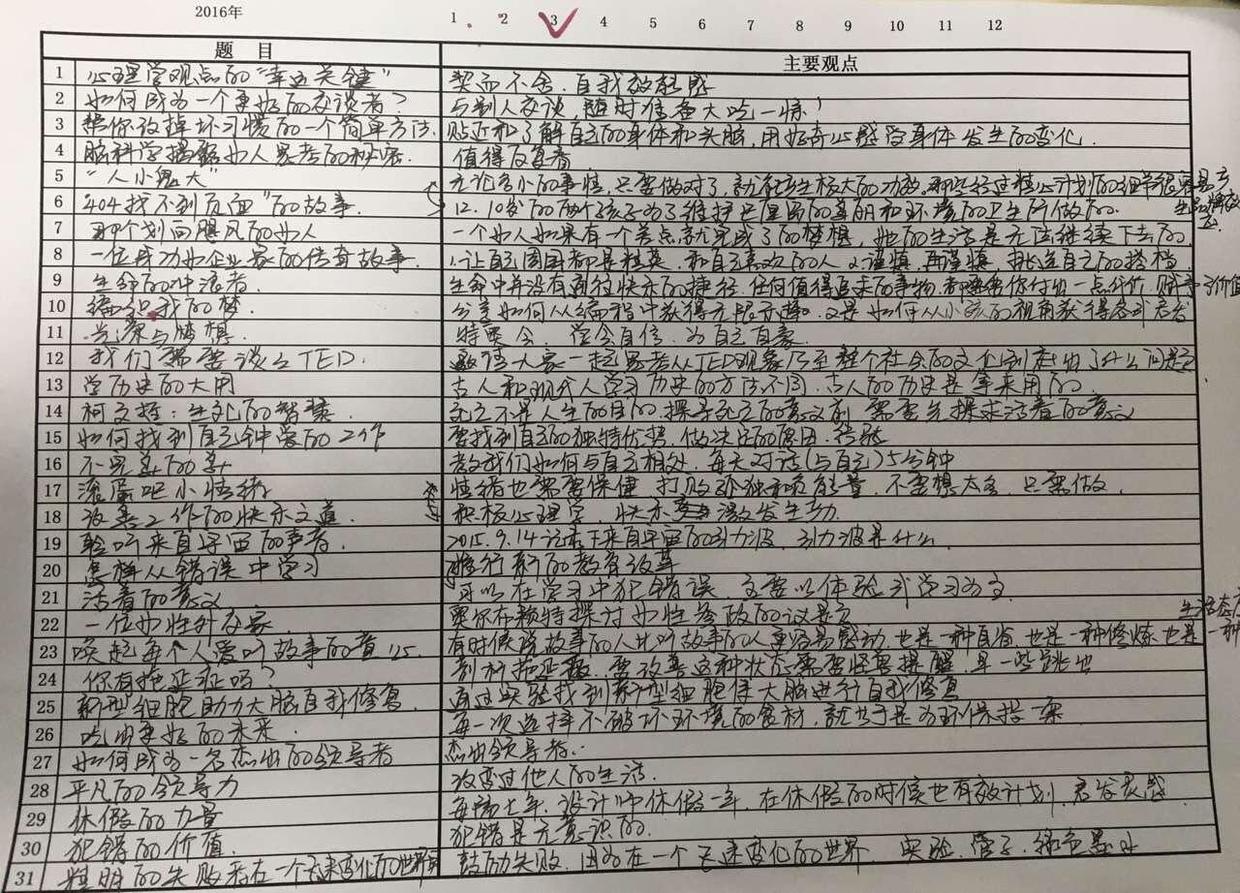 2016年 1 2 3 4 5 6 7 8 9 10 11 12
题 目 主要观点
1 心理学观点的“幸运关键” 契而不舍.自我效能感
2 如何成为一个更好的交谈者? 与别人交谈,随时准备大吃一惊!
3 帮你改掉坏习惯的一个简单方法. 贴近和了解自己的身体和头脑,用好奇心感受身体发生的变化.
4 脑科学揭秘女人思考的秘密. 值得反复看
5 “人小鬼大” 无论多小的事情,只要做对了,就能产生极大的功效.那些经过精心计划的
6 404找不到页面”的故事. 12.10岁的两个孩子为了维护巴厘岛的美丽和环境的卫生所做的.
7 那个划向飓风的女人 一个女人如果有一个差点就完成了的梦想,她的生活是无法继续下去的.
8 一位成功女企业家的传奇故事. 1.让自己周围都是精英.和自己喜欢的人 2.谨慎.再谨慎 挑选自己的搭档
9 生命的冲浪者. 生命中并没有通往快乐的捷径.任何值得追求的事物.都要你付出一点代价.
10 编织我的梦. 分享如何从编程中获得无限乐趣.又是如何从小孩的视角获得
11 当 与梦想. 特奥会.学会自信.为自己自豪.
12 我们需要谈么TED. 邀请大家一起思考从TED现象乃至整个社会的文化到底出了什么问题
13 学历史的大用 古人和现代人学习历史的方法不同.古人的历史是拿来用的.
14 柯文哲:生死的智慧. 死亡不是人生的目的.探寻死亡的意义前.需要先探求活着的意义
15 如何找到自己钟爱的工作 要找到自己的独特优势.做决定的原因.
16 不完美的美 教我们如何与自己相处.每天对话(与自己)5分钟
17 滚蛋吧小情绪 情绪也需要保健 打败孤独和负能量.不要想太多.只需做.
18 改善工作的快乐之道. 积极心理学.快乐 激发生动
19 聆听来自宇宙的声音. 2015.9.14记录下来自宇宙的引力波.引力波是什么.
20 怎样从错误中学习 推行新的教育改革
可以在学习中犯错误.主要以体验式学习为主
21 活着的意义
22 一位女性外交家 里尔布赖特探讨女性参政的议题
23 唤起每个人爱听故事的童心. 有时候说故事的人比听故事的人更容易感动.也是一种自省.也是一种修炼.也是一种
24 你有拖延症吗? 剖析拖延症.要改善这种状态需要
25 新型细胞助力大脑自我修复. 通过实验找到新型细胞使大脑进行自我修复
26 吃出更好的未来. 每一次选择不破坏环境的食材.就等于是为环保投一票
27 如何成为一名杰出的领导者 杰出领导者..
28 平凡的领导力 改变过他人的生活.
29 休假的力量 每隔七年.设计师休假一年.在休假的时候也有效计划.启发灵感
30 犯错的价值. 犯错是无意识的.
31 精明的失败者在一个飞速变化的世界 鼓励失败.因为在一个飞速变化的世界 实验.